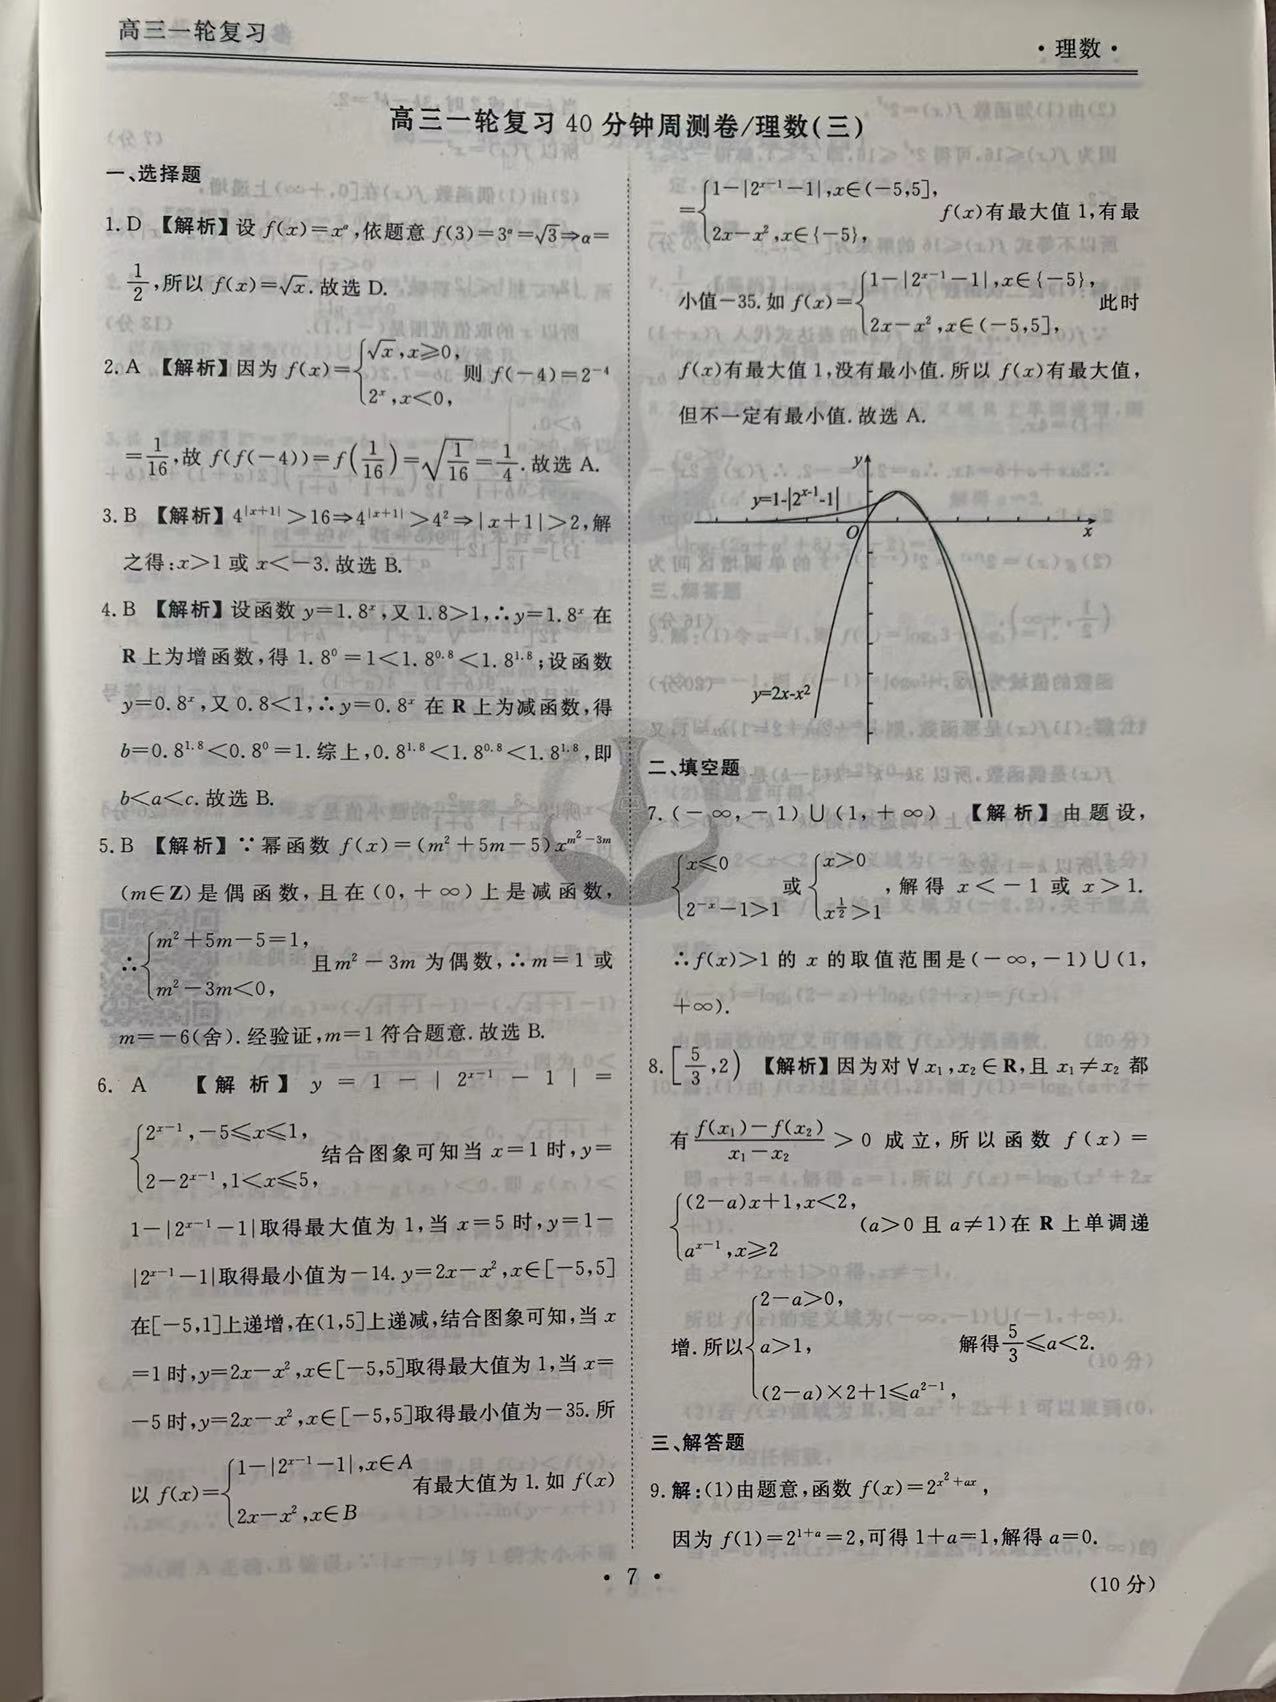 高三一轮复习
·理数·
高三一轮复习 40 分钟周测卷/理数(三)
一、选择题
1. D 【解析】设 f(x)=xᵅ,依题意 f(3)=3ᵅ=√3⇒α=
1/2,所以 f(x)=√x.故选 D.
2. A 【解析】因为 f(x)={√x,x≥0, 2ˣ,x<0, 则 f(-4)=2⁻⁴
=1/16,故 f(f(-4))=f(1/16)=√(1/16)=1/4.故选 A.
3. B 【解析】4^|x+1|>16⇒4^|x+1|>4²⇒|x+1|>2,解
之得:x>1 或 x<-3.故选 B.
4. B 【解析】设函数 y=1.8ˣ,又 1.8>1,∴y=1.8ˣ 在
R 上为增函数,得 1.8⁰=1<1.8^0.8<1.8^1.8;设函数
y=0.8ˣ,又 0.8<1,∴y=0.8ˣ 在 R 上为减函数,得
b=0.8^1.8<0.8⁰=1.综上,0.8^1.8<1.8^0.8<1.8^1.8,即
b<a<c.故选 B.
5. B 【解析】∵幂函数 f(x)=(m²+5m-5)x^(m²-3m)
(m∈Z)是偶函数,且在(0,+∞)上是减函数,
∴{m²+5m-5=1, m²-3m<0, 且m²-3m 为偶数,∴m=1 或
m=-6(舍).经验证,m=1 符合题意.故选 B.
6. A 【解析】y=1-|2^(x-1)-1|=
{2^(x-1),-5≤x≤1, 2-2^(x-1),1<x≤5, 结合图象可知当 x=1 时,y=
1-|2^(x-1)-1|取得最大值为 1,当 x=5 时,y=1-
|2^(x-1)-1|取得最小值为-14.y=2x-x²,x∈[-5,5]
在[-5,1]上递增,在(1,5]上递减,结合图象可知,当 x
=1 时,y=2x-x²,x∈[-5,5]取得最大值为 1,当 x=
-5 时,y=2x-x²,x∈[-5,5]取得最小值为-35.所
以 f(x)={1-|2^(x-1)-1|,x∈A 2x-x²,x∈B 有最大值为 1.如 f(x)
={1-|2^(x-1)-1|,x∈(-5,5], 2x-x²,x∈{-5}, f(x)有最大值 1,有最
小值-35.如 f(x)={1-|2^(x-1)-1|,x∈{-5}, 2x-x²,x∈(-5,5], 此时
f(x)有最大值 1,没有最小值.所以 f(x)有最大值,
但不一定有最小值.故选 A.
y
y=1-|2^(x-1)-1|
O
x
y=2x-x²
二、填空题
7. (-∞,-1)∪(1,+∞) 【解析】由题设,
{x≤0 2^(-x)-1>1 或{x>0 x^(1/2)>1 ,解得 x<-1 或 x>1.
∴f(x)>1 的 x 的取值范围是(-∞,-1)∪(1,
+∞).
8. [5/3,2) 【解析】因为对∀x₁,x₂∈R,且 x₁≠x₂ 都
有 (f(x₁)-f(x₂))/(x₁-x₂)>0 成立,所以函数 f(x)=
{(2-a)x+1,x<2, a^(x-1),x≥2 (a>0 且 a≠1)在 R 上单调递
增.所以{2-a>0, a>1, (2-a)×2+1≤a^(2-1), 解得5/3≤a<2.
三、解答题
9. 解:(1)由题意,函数 f(x)=2^(x²+ax),
因为 f(1)=2^(1+a)=2,可得 1+a=1,解得 a=0.
(10 分)
· 7 ·